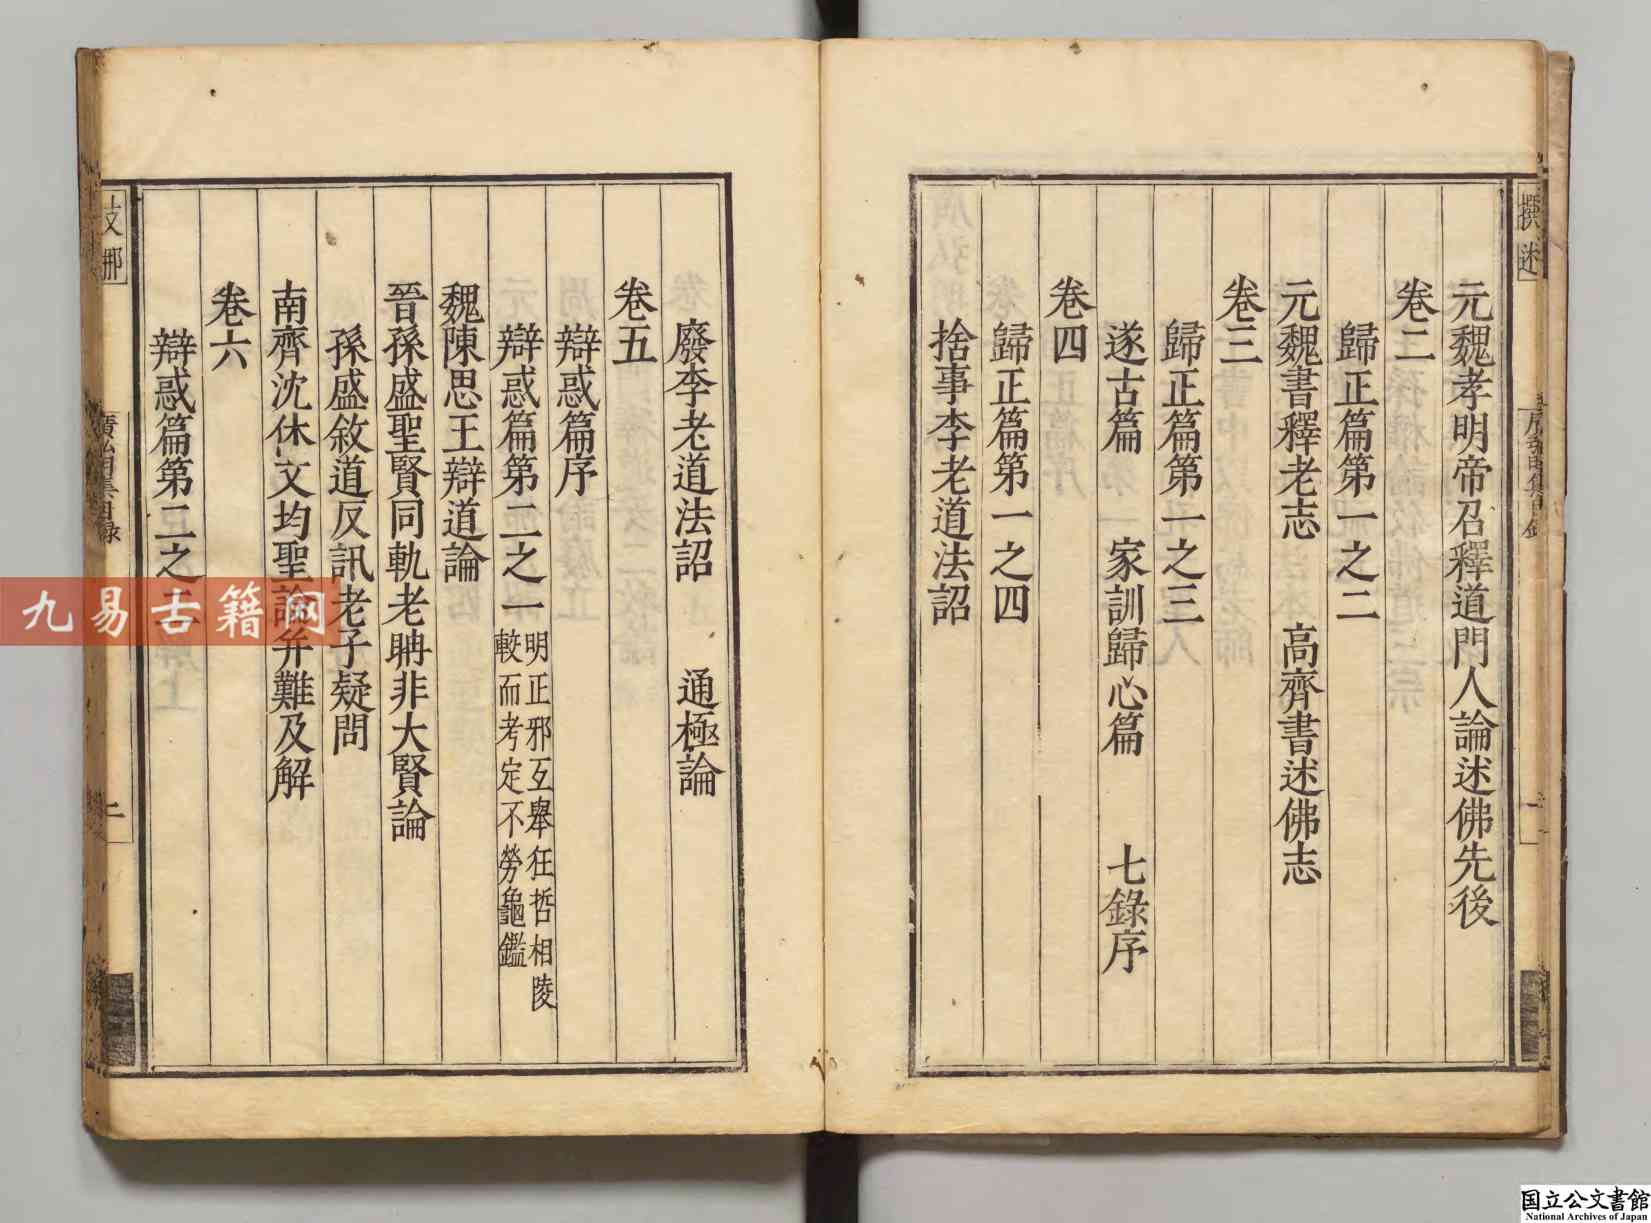 撰述
元魏孝明帝召釋道門人論述佛先後
卷二
歸正篇第一之二
元魏書釋老志　高齊書述佛志
卷三
歸正篇第一之三
遂古篇　家訓歸心篇　七錄序
卷四
歸正篇第一之四
捨事李老道法詔
廢李老道法詔　通極論
卷五
辯惑篇序
辯惑篇第二之一
明正邪互舉狂哲相陵
較而考定不勞龜鑑
魏陳思王辯道論
晉孫盛聖賢同軌老聃非大賢論
孫盛敘道反訊老子疑問
南齊沈休文均聖論并難及解
卷六
辯惑篇第二之二
支那
廣弘明集目錄
二
九易古籍网
国立公文書館
National Archives of Japan